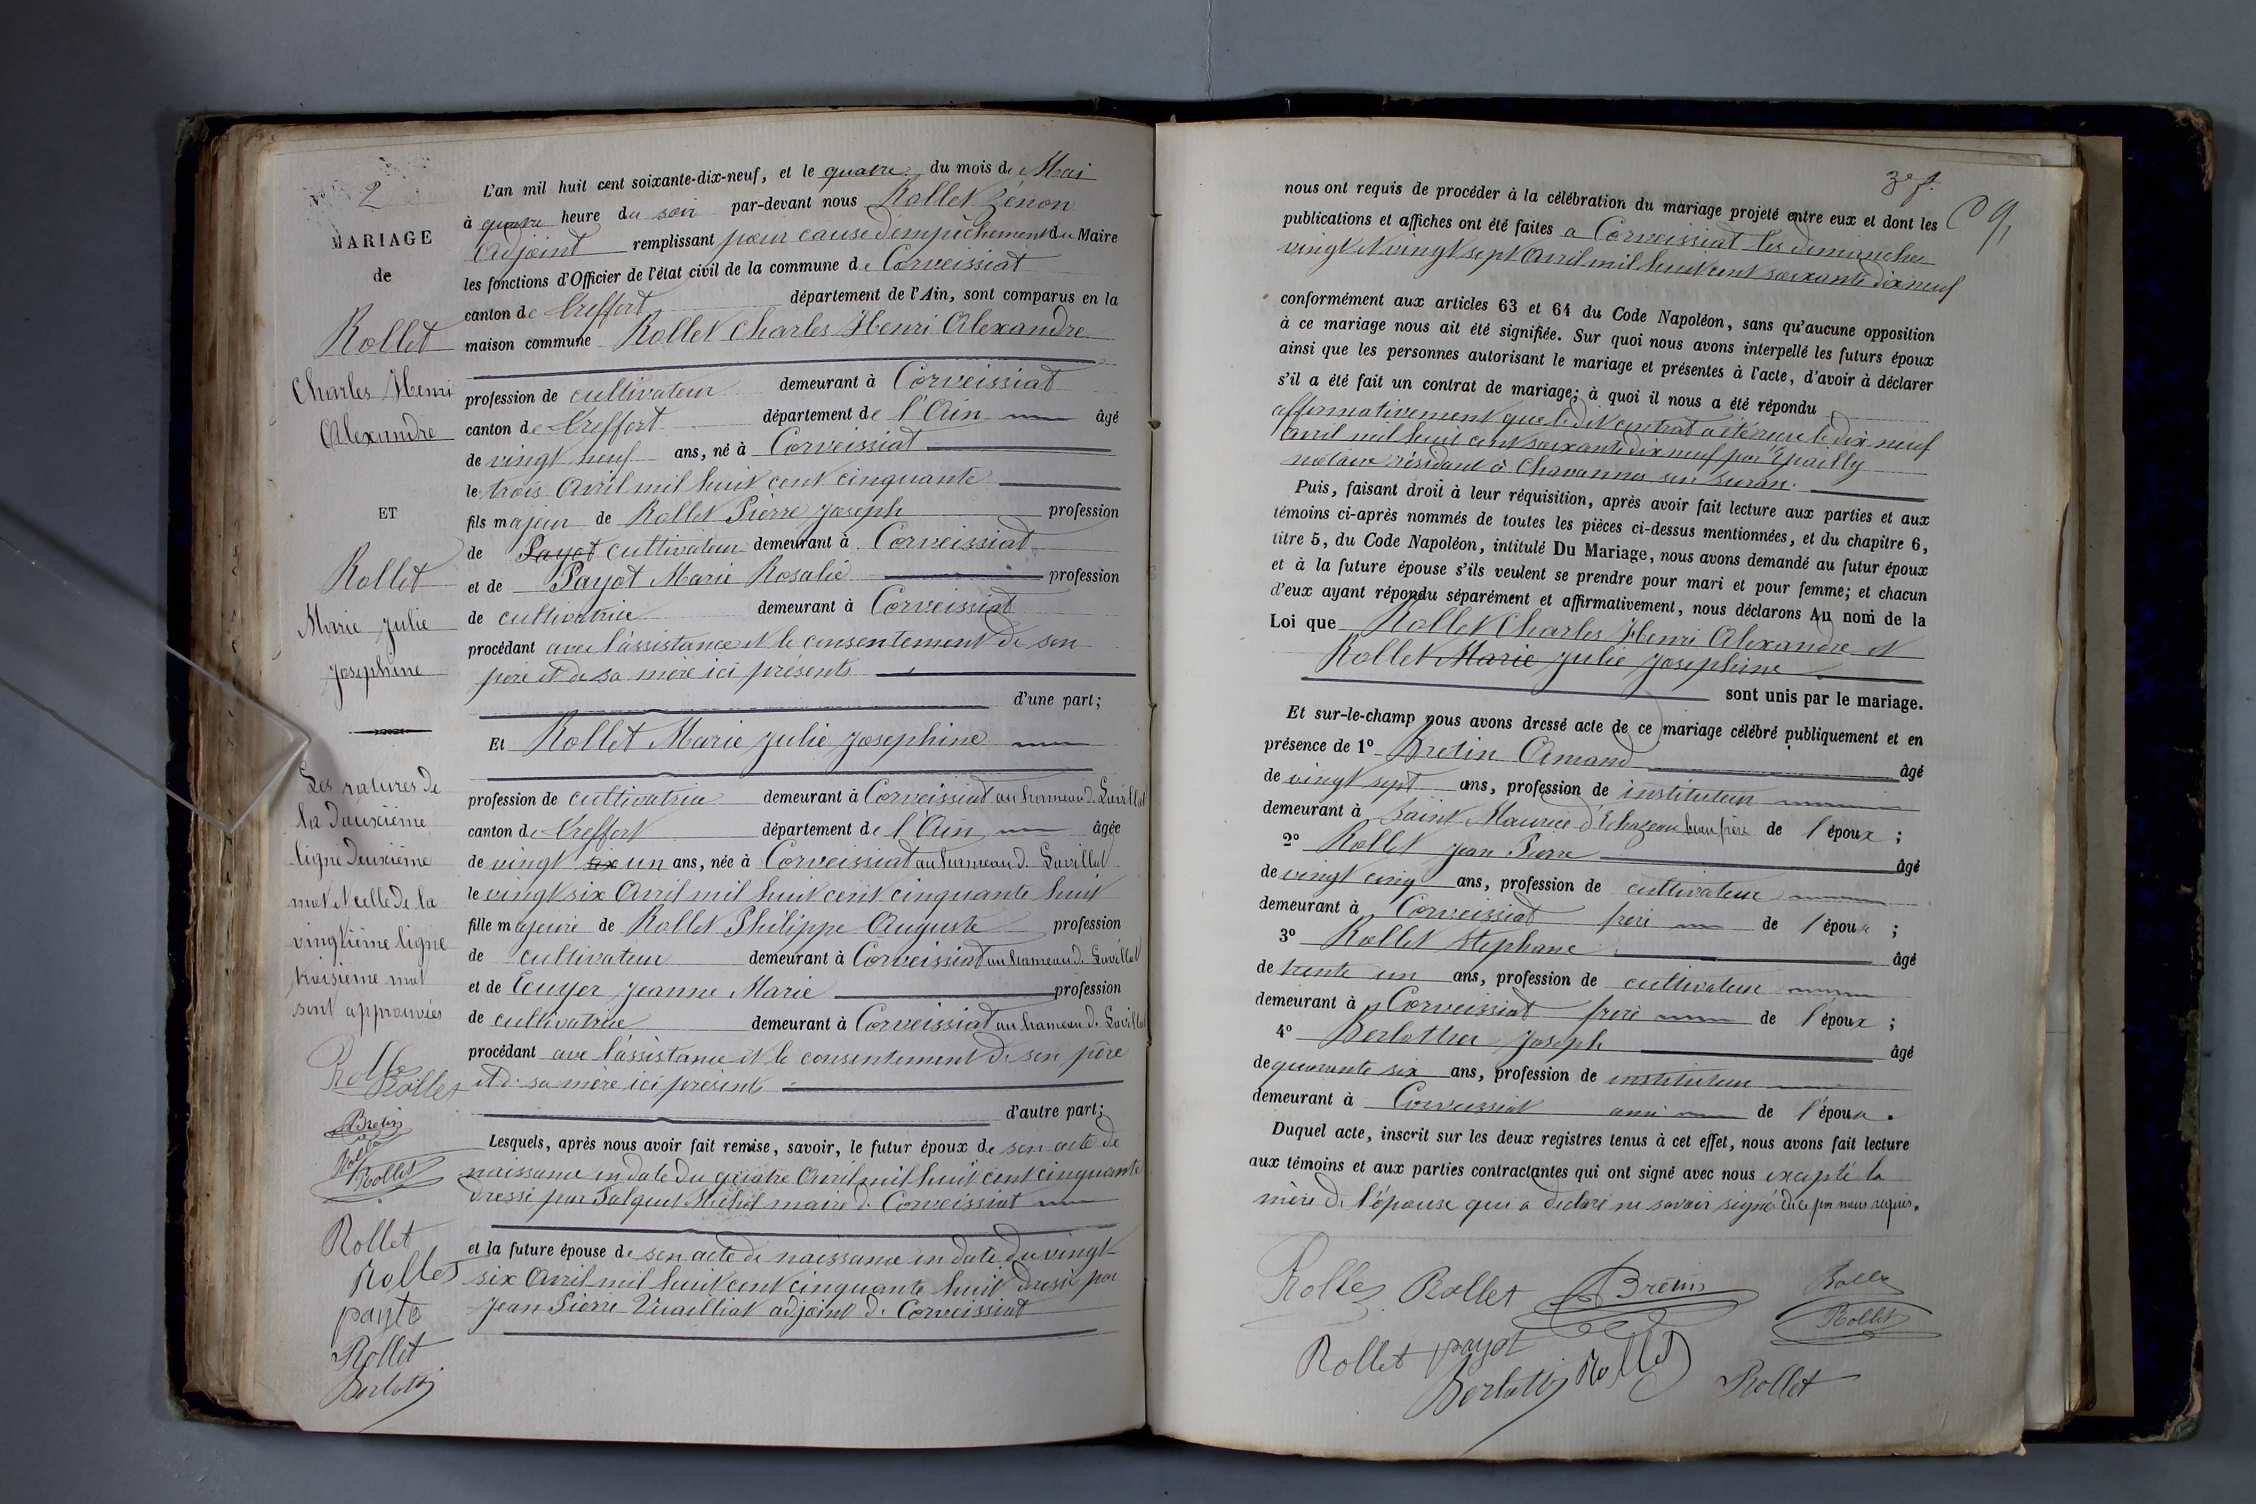 N° 2
MARIAGE
de
Rollet
Charles Henri
Alexandre
ET
Rollet
Marie Julie
Josephine
Les ratures de
la deuxième
ligne deuxième
mot et celle de la
vingtième ligne
troisième mot
sont approuvées
Rollet
Rollet
Bretin
Rollet
Rollet
Rollet
Payot
Rollet
L'an mil huit cent soixante-dix-neuf, et le quatre du mois de Mai
à quatre heure du soir par-devant nous Rollet Zénon
Adjoint remplissant pour cause d'empêchement du Maire
les fonctions d'Officier de l'état civil de la commune de Corveissiat
canton de Treffort département de l'Ain, sont comparus en la
maison commune Rollet Charles Henri Alexandre
profession de cultivateur demeurant à Corveissiat
canton de Treffort département de l'Ain âgé
de vingt neuf ans, né à Corveissiat
le trois Avril mil huit cent cinquante
fils majeur de Rollet Pierre Joseph profession
de Payot cultivateur demeurant à Corveissiat
et de Payot Marie Rosalie profession
de cultivatrice demeurant à Corveissiat
procédant avec l'assistance et le consentement de son
père et de sa mère ici présents
d'une part;
Et Rollet Marie Julie Josephine
profession de cultivatrice demeurant à Corveissiat au hameau de
canton de Treffort département de l'Ain âgée
de vingt six un ans, née à Corveissiat au hameau de
le vingt six Avril mil huit cent cinquante huit
fille majeure de Rollet Philippe Auguste profession
de cultivateur demeurant à Corveissiat au hameau de
et de Ecuyer Jeanne Marie profession
de cultivatrice demeurant à Corveissiat au hameau de
procédant avec l'assistance et le consentement de son père
et de sa mère ici présents
d'autre part;
Lesquels, après nous avoir fait remise, savoir, le futur époux de son acte de
naissance en date du quatre Avril mil huit cent cinquante
dressé par maire de Corveissiat
et la future épouse de son acte de naissance en date du vingt
six Avril mil huit cent cinquante huit dressé par
Jean Pierre adjoint de Corveissiat
3e f.
nous ont requis de procéder à la célébration du mariage projeté entre eux et dont les
publications et affiches ont été faites à Corveissiat les dimanches
vingt et vingt sept Avril mil huit cent soixante dix neuf
conformément aux articles 63 et 64 du Code Napoléon, sans qu'aucune opposition
à ce mariage nous ait été signifiée. Sur quoi nous avons interpellé les futurs époux
ainsi que les personnes autorisant le mariage et présentes à l'acte, d'avoir à déclarer
s'il a été fait un contrat de mariage; à quoi il nous a été répondu
affirmativement que le dit contrat a été reçu le dix neuf
Avril mil huit cent soixante dix neuf par Epailly
notaire résidant à Chavannes sur Suran.
Puis, faisant droit à leur réquisition, après avoir fait lecture aux parties et aux
témoins ci-après nommés de toutes les pièces ci-dessus mentionnées, et du chapitre 6,
titre 5, du Code Napoléon, intitulé Du Mariage, nous avons demandé au futur époux
et à la future épouse s'ils veulent se prendre pour mari et pour femme; et chacun
d'eux ayant répondu séparément et affirmativement, nous déclarons Au nom de la
Loi que Rollet Charles Henri Alexandre et
Rollet Marie Julie Josephine
sont unis par le mariage.
Et sur-le-champ nous avons dressé acte de ce mariage célébré publiquement et en
présence de 1° Bretin Armand âgé
de vingt sept ans, profession de instituteur
demeurant à Saint Maurice d'Echazeau beau frère de l'époux;
2° Rollet Jean Pierre âgé
de vingt cinq ans, profession de cultivateur
demeurant à Corveissiat frère de l'époux;
3° Rollet Stephane âgé
de trente un ans, profession de cultivateur
demeurant à Corveissiat frère de l'époux;
4° Joseph âgé
de quarante six ans, profession de instituteur
demeurant à Corveissiat ami de l'époux.
Duquel acte, inscrit sur les deux registres tenus à cet effet, nous avons fait lecture
aux témoins et aux parties contractantes qui ont signé avec nous excepté la
mère de l'épouse qui a déclaré ne savoir signé de ce par nous requis.
Rollet Rollet Bretin Rollet
Rollet
Rollet payot
Rollet Rollet